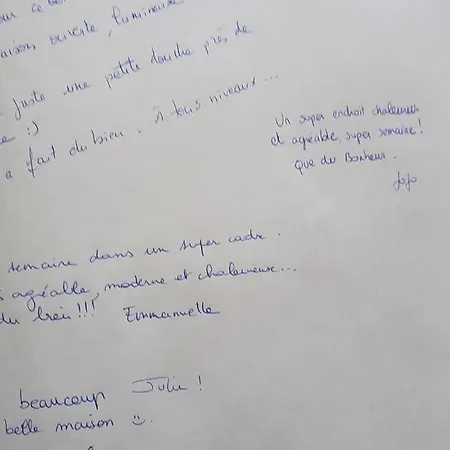 aison ouverte, lumineuse
juste une petite douche près de
:)
a fait du bien. À tous niveaux...
Un super endroit chaleureux
et agréable, super semaine!
Que du Bonheur.
JoJo
semaine dans un super cadre.
agréable, moderne et chaleureuse...
du lieu!!! Emmanuelle
beaucoup Julie!
belle maison